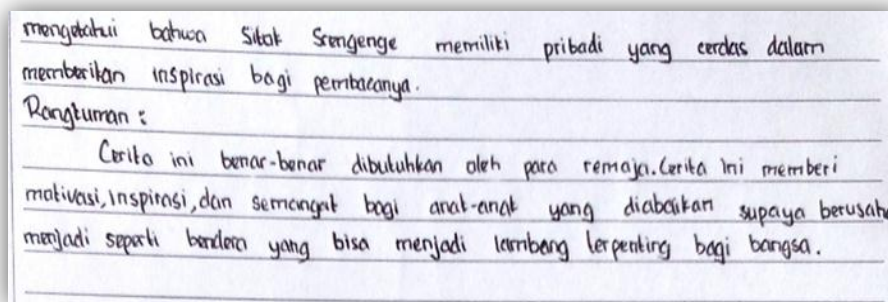 mengetahui bahwa Sitok Srengenge memiliki pribadi yang cerdas dalam
memberikan inspirasi bagi pembacanya.
Rangkuman :
Cerita ini benar-benar dibutuhkan oleh para remaja. Cerita ini memberi
motivasi, inspirasi, dan semangat bagi anak-anak yang diabaikan supaya berusaha
menjadi seperti bendera yang bisa menjadi lambang terpenting bagi bangsa.